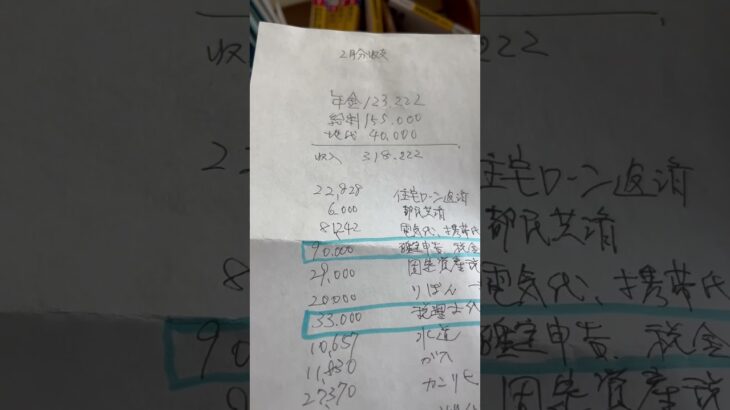 2月分収支
年金 123.222
給料 155.000
地代 40.000
収入 318.222
22,828 住宅ローン返済
6.000 都民共済
81242 電気代、携帯代
90.000 確定申告、税金
29,000 固定資産税
20000 りぼん
33.000 税理士代
10,657 水道
11,830 ガス
27,370 カンリヒ